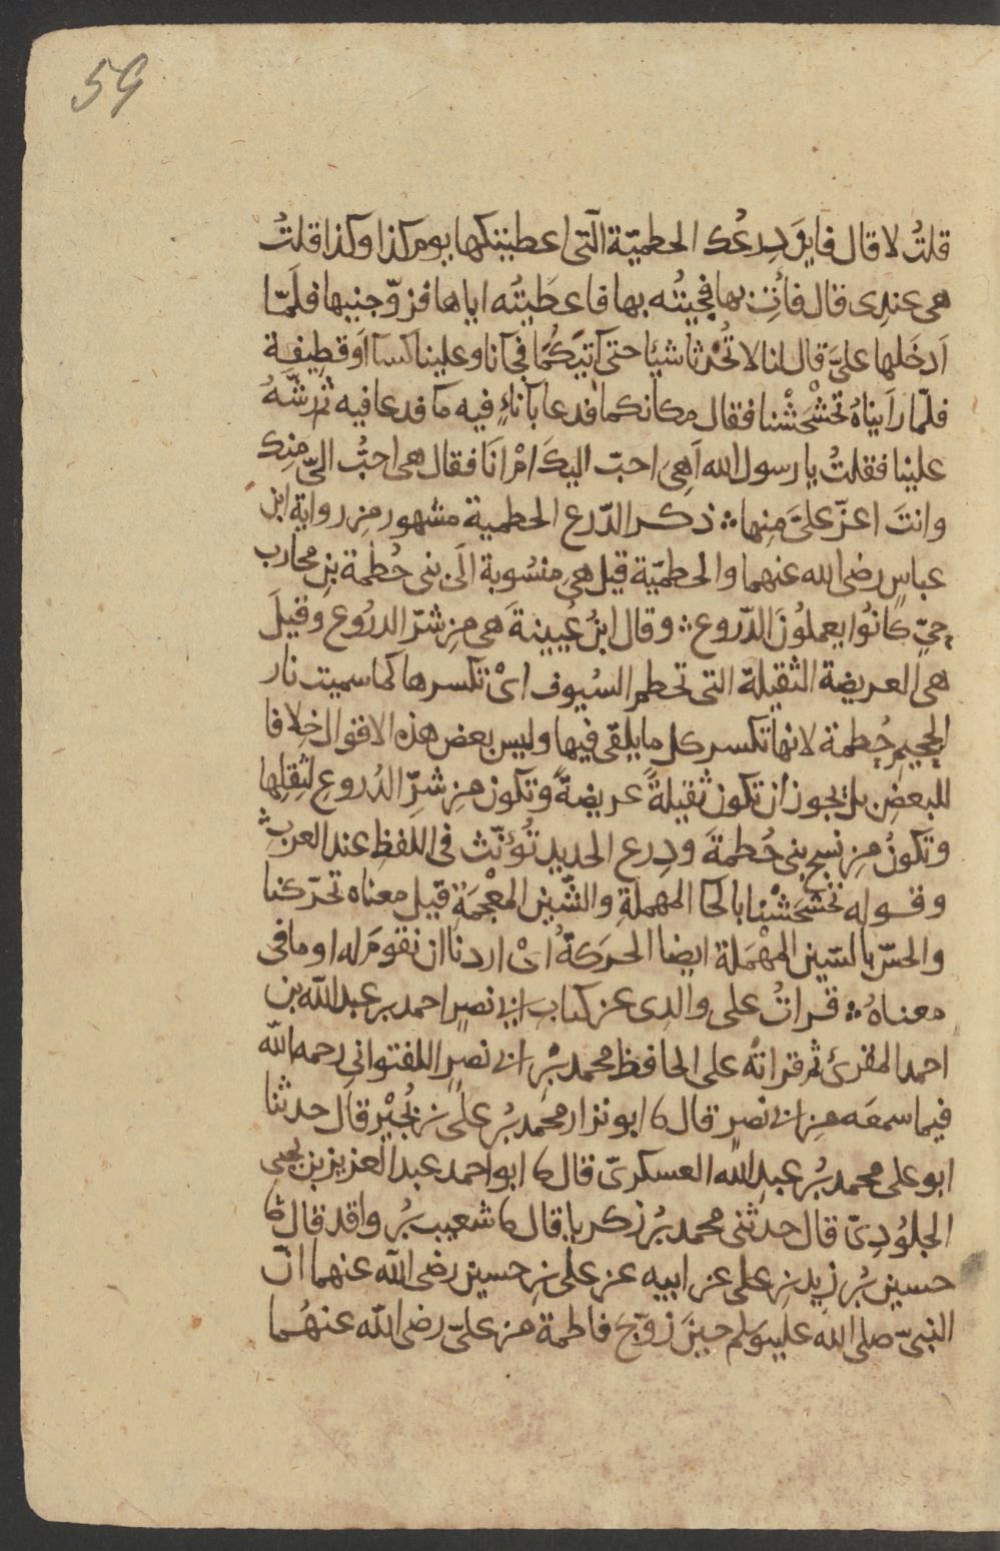 59
قلتُ لا قال فاين دِرعُك الحطميّة الّتى اعطيتكها يوم كذا وكذا قلتُ
هى عندى قال فأتِ بها فجيتُه بها فاعطَيتُه اياها فزوّجنيها فلَمّا
اَدخَلها علىَّ قال لنا لا تُحْدِثا شيًا حتى آتيَكُما فجآنا وعلينا كسآ اَو قطِيفة
فلمّا رايناهُ تَحَشْحَشْنا فقال مكانكما فدعا باناءٍ فيه مآ فدعا فيه ثم رشَّهُ
علينا فقلتُ يا رسول الله اَهِىَ احبّ اليكَ امْ انَا فقال هى احبُّ الىّ منك
وانتَ اعزّ علىَّ مِنها ذكر الدّرع الحطمية مشهور من رواية ابن
عباسٍ رضى الله عنهما والحطميّة قيل هى منسُوبة الَى بنى حُطمة بن محارب
حىّ كانُوا يعملُونَ الدّروع وقال ابنُ عُيينةَ هى من شرّ الدرُوع وقيلَ
هى العريضة الثقيلة التى تحطم السُيوف اىْ تكسرها كما سميت نار
الجحيم حُطمة لانها تكسر كل ما يلقى فيها وليس بعض هذه الاقوال خِلافا
للبعضِ بل يجوز ان تكون ثقيلةً عريضةً وتكون من شرّ الدُروع لثِقلِها
وتكونُ من نسج بنى حُطمةَ ودِرع الحديد تُؤنّث فى اللفظِ عند العرب
وقوله تَحَشْحَشْنا بالحا المهملةِ والشّين المعْجَمةِ قيل معناه تحرّكنا
والحسّ بالسّين المهْمَلة ايضا الحرَكةُ اىْ اردنا ان نقومَ له او ما فى
معناهُ قراتُ على والدى عن كتابِ ابى نصرٍ احمد بن عبد الله بن
احمد المقرئ ثم قراتهُ على الحافظ محمد بن ابى نصرٍ اللفتوانى رحمه الله
فيما سمعَه من ابى نصرٍ قال ابو نزار محمد بنُ على بن نُجَيْر قال حدثنا
ابو على محمد بنُ عبدِ الله العسكرىّ قال ابو احمد عبد العزيز بن يحيى
الجلُودِىّ قال حدثنى محمد بنُ زكريا قال شعيب بنُ واقد قال
حسين بنُ زيد بن على عن ابيه عن على بن حسين رضى الله عنهما انّ
النبىّ صلى الله عليه وسلم حينَ زوّجَ فاطمة من علىّ رضى الله عنهُما